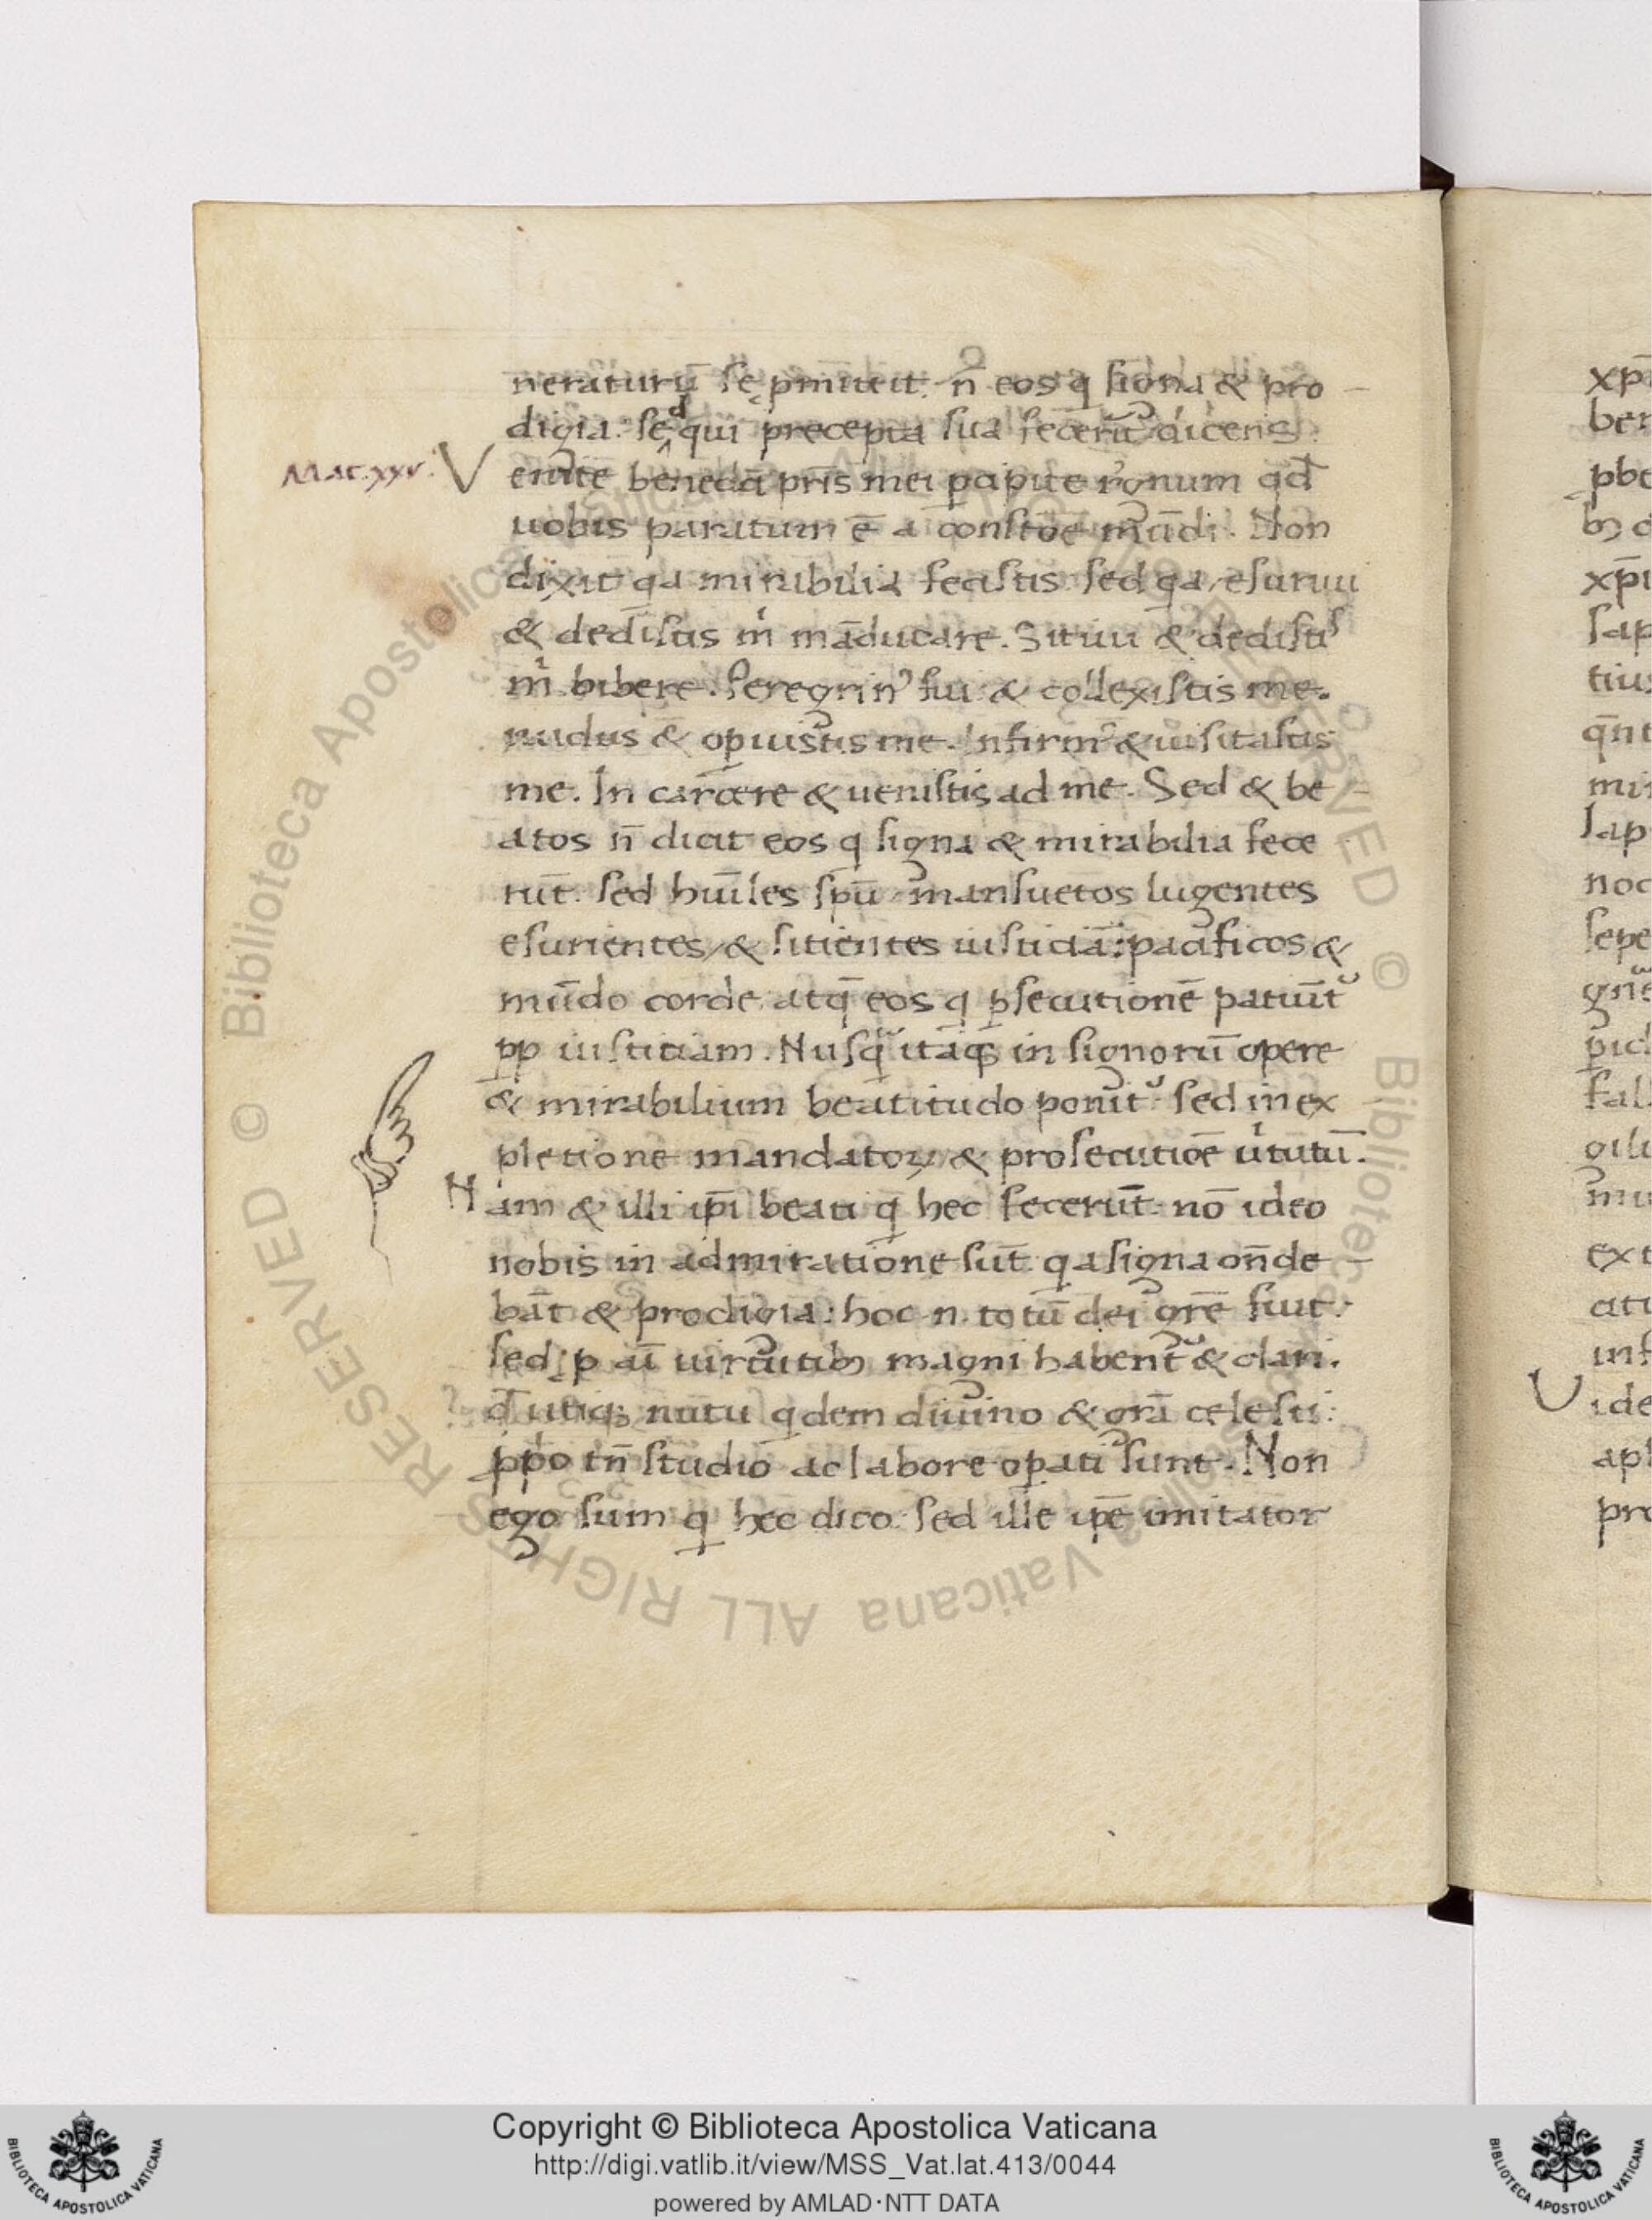 neraturū se pmittit. n̄ eos q signa & pro
digia. sed qui precepta sua fecerūt dicens
Mat. xxv. Venite bened̄ci pr̄is mei p̱cipite r̓gnum qd̄
uobis paratum ē a c̄onst̄oe mūdi. Non
dixit qa mirabilia fecistis sed qa esuriui
& dedistis m̓ māducare. Sitiui & dedistis
m̓ bibere. Peregrin᾽ fui & collexistis me.
nudus & op̱uistis me. Infirm᾽ & uisitastis
me. In carcere & uenistis ad me. Sed & be
atos n̄ dicit eos q signa & mirabilia fece
rūt. sed hūiles sp̄u mansuetos lugentes
esurientes & sitientes iusticiā: pacificos &
mūdo corde atq̄ eos q p̱secutionē patiūt᾽
pp iusticiam. Nusq̄ itaq; in signorū opere
& mirabilium beatitudo ponit᾽ sed in ex
pletione mandatoꝝ & prosecutiōe u̓tutū.
Nam & illi ip̄i beati q hec fecerūt. nō ideo
nobis in admiratione sūt qa signa on̄de
bāt & prodigia: hoc n. totū dei gr̄e fuit.
sed p aī uirtutib; magni habent᾽ & clari.
qd̄ utiq; nutu qdem diuino & gr̄a celesti:
pp̱o tn̄ studio ac labore op̱ati sunt. Non
ego sum q hec dico. sed ille ip̄e imitator
Copyright © Biblioteca Apostolica Vaticana
http://digi.vatlib.it/view/MSS_Vat.lat.413/0044
powered by AMLAD·NTT DATA